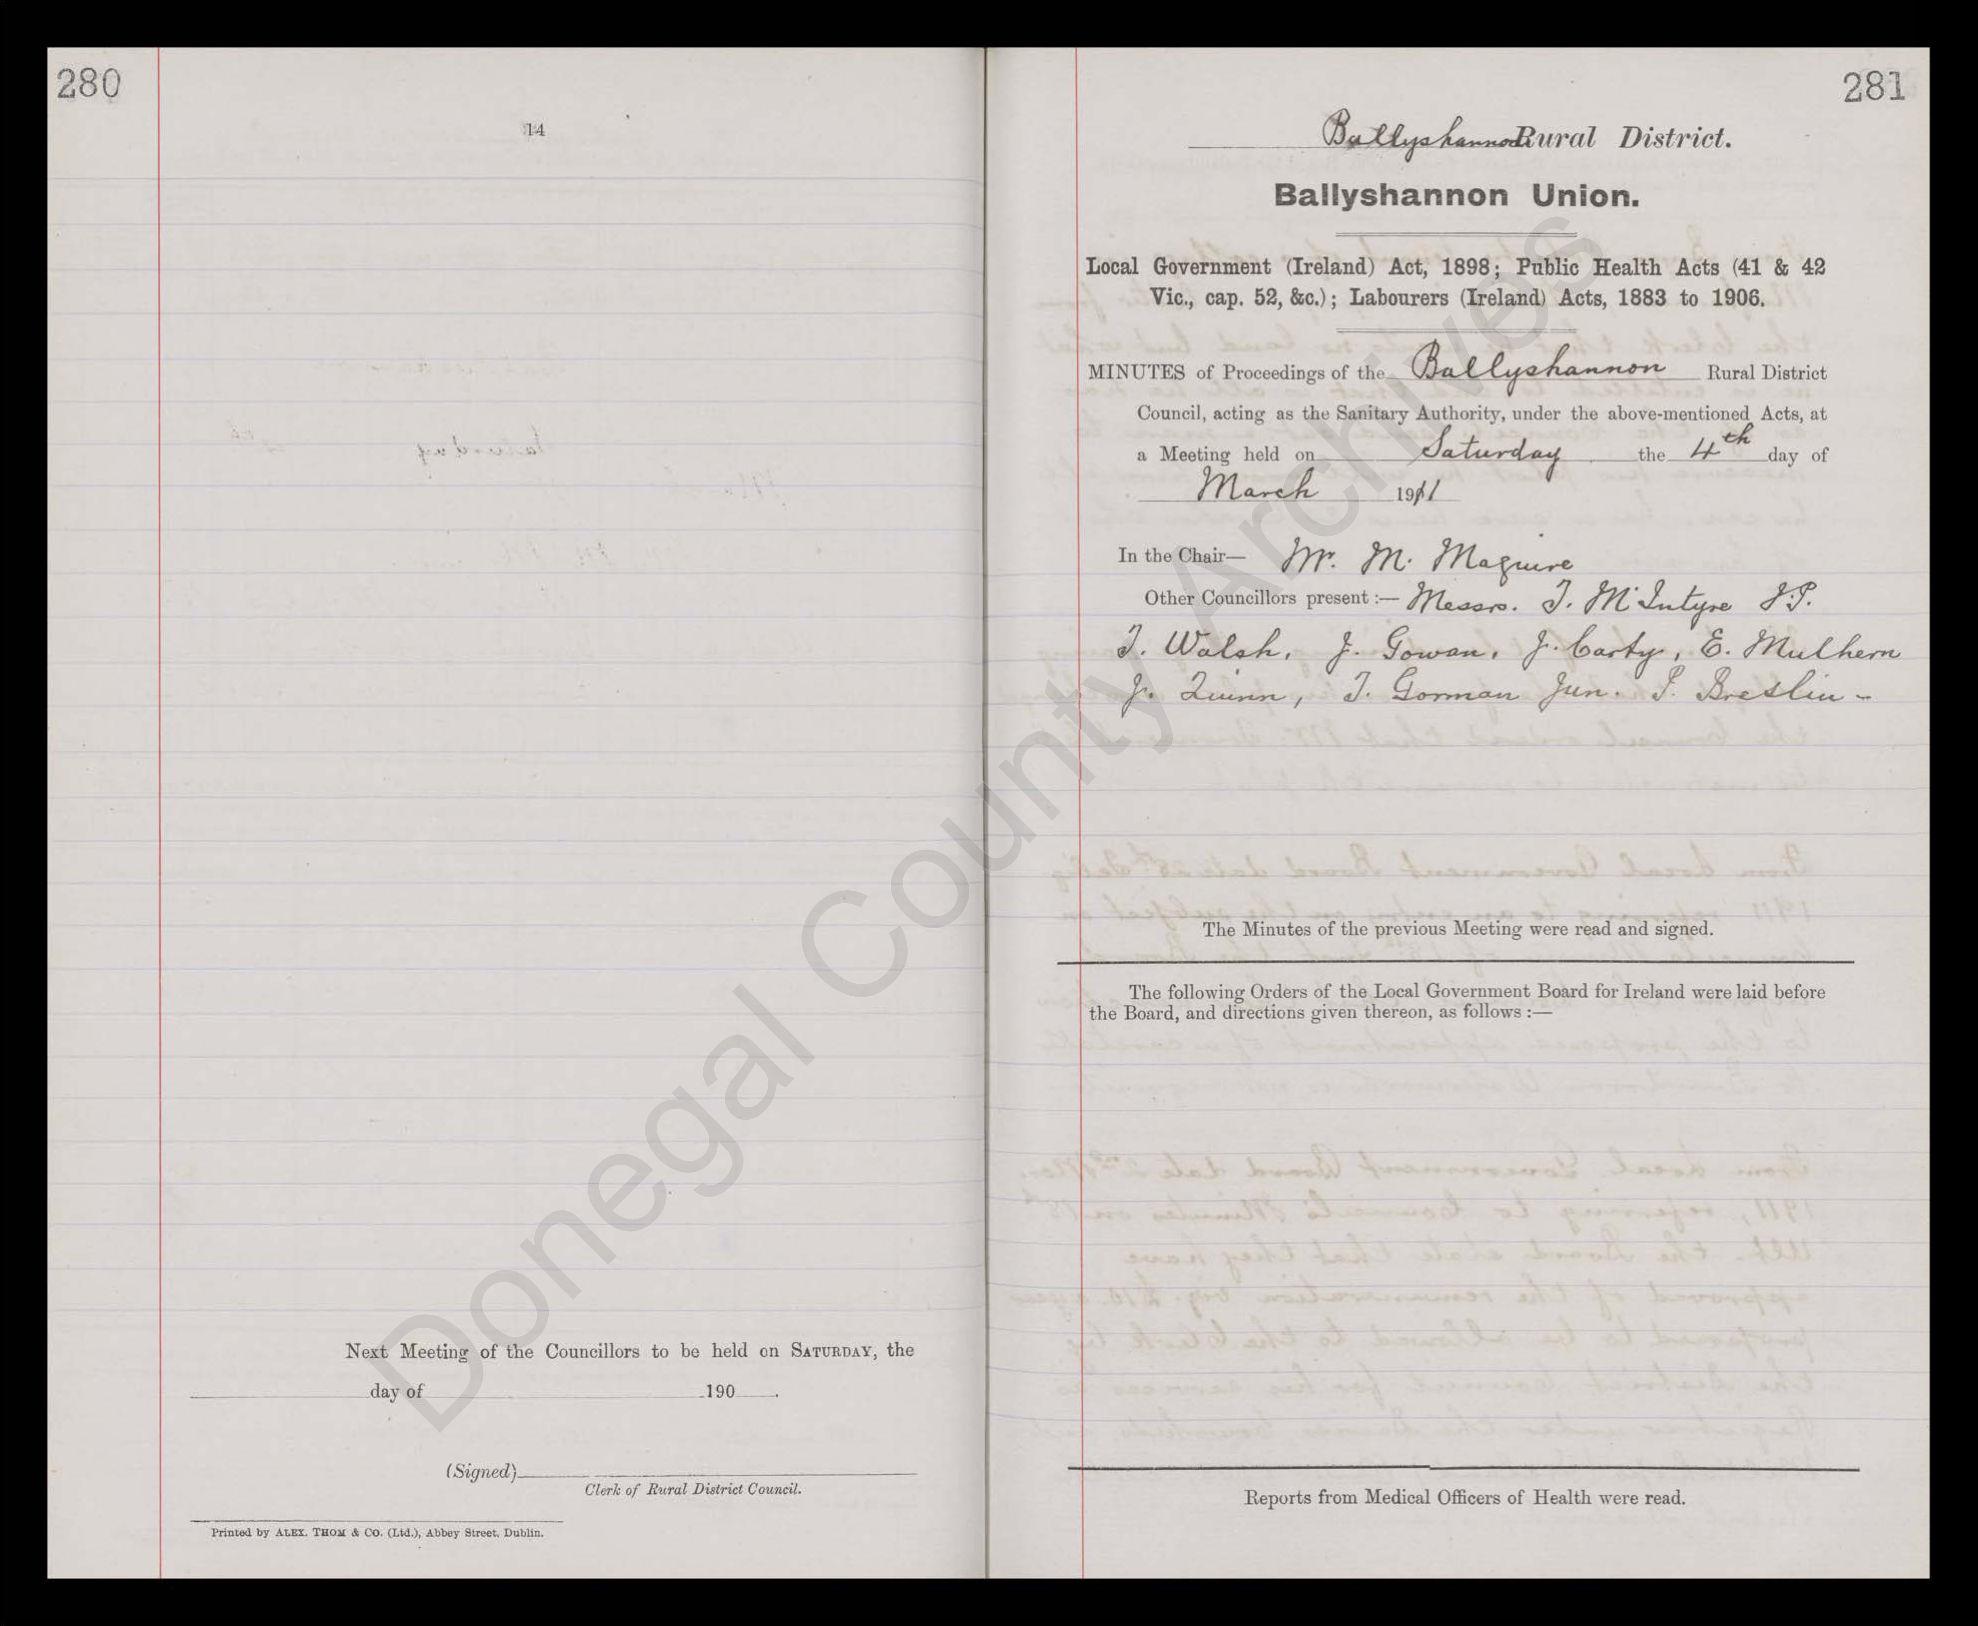 280
14
Next Meeting of the Councillors to be held on SATURDAY, the
day of 190 .
(Signed)
Clerk of Rural District Council.
Printed by ALEX. THOM & CO. (Ltd.), Abbey Street, Dublin.
281
Ballyshannon Rural District.
Ballyshannon Union.
Local Government (Ireland) Act, 1898; Public Health Acts (41 & 42
Vic., cap. 52, &c.); Labourers (Ireland) Acts, 1883 to 1906.
MINUTES of Proceedings of the Ballyshannon Rural District
Council, acting as the Sanitary Authority, under the above-mentioned Acts, at
a Meeting held on Saturday the 4th day of
March 1911
In the Chair— Mr. M. Maguire
Other Councillors present :— Messrs. T. McIntyre J.P.
T. Walsh, J. Gowan, J. Carty, E. Mulhern
J. Quinn, T. Gorman Jun. P. Breslin -
The Minutes of the previous Meeting were read and signed.
The following Orders of the Local Government Board for Ireland were laid before
the Board, and directions given thereon, as follows :—
Reports from Medical Officers of Health were read.
Donegal County Archives